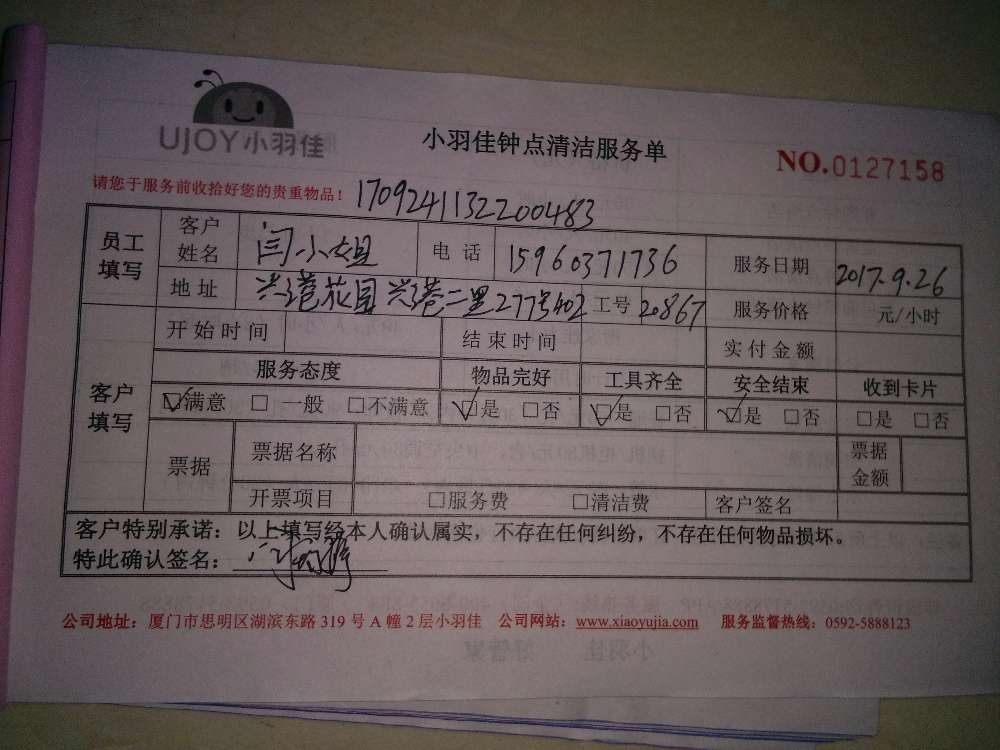 UJOY小羽佳
小羽佳钟点清洁服务单
NO.0127158
请您于服务前收拾好您的贵重物品！
1709241132200483
员工填写 客户姓名 闫小姐 电话 15960371736 服务日期 2017.9.26
地址 兴港花园兴港二里277号402 工号 20867 服务价格 元/小时
客户填写 开始时间 结束时间 实付金额
服务态度 物品完好 工具齐全 安全结束 收到卡片
☑满意 □ 一般 □不满意 ☑是 □否 ☑是 □否 ☑是 □否 □是 □否
票据 票据名称 票据金额
开票项目 □服务费 □清洁费 客户签名
客户特别承诺：以上填写经本人确认属实，不存在任何纠纷，不存在任何物品损坏。
特此确认签名：
公司地址：厦门市思明区湖滨东路 319 号 A 幢 2 层小羽佳 公司网站：www.xiaoyujia.com 服务监督热线：0592-5888123